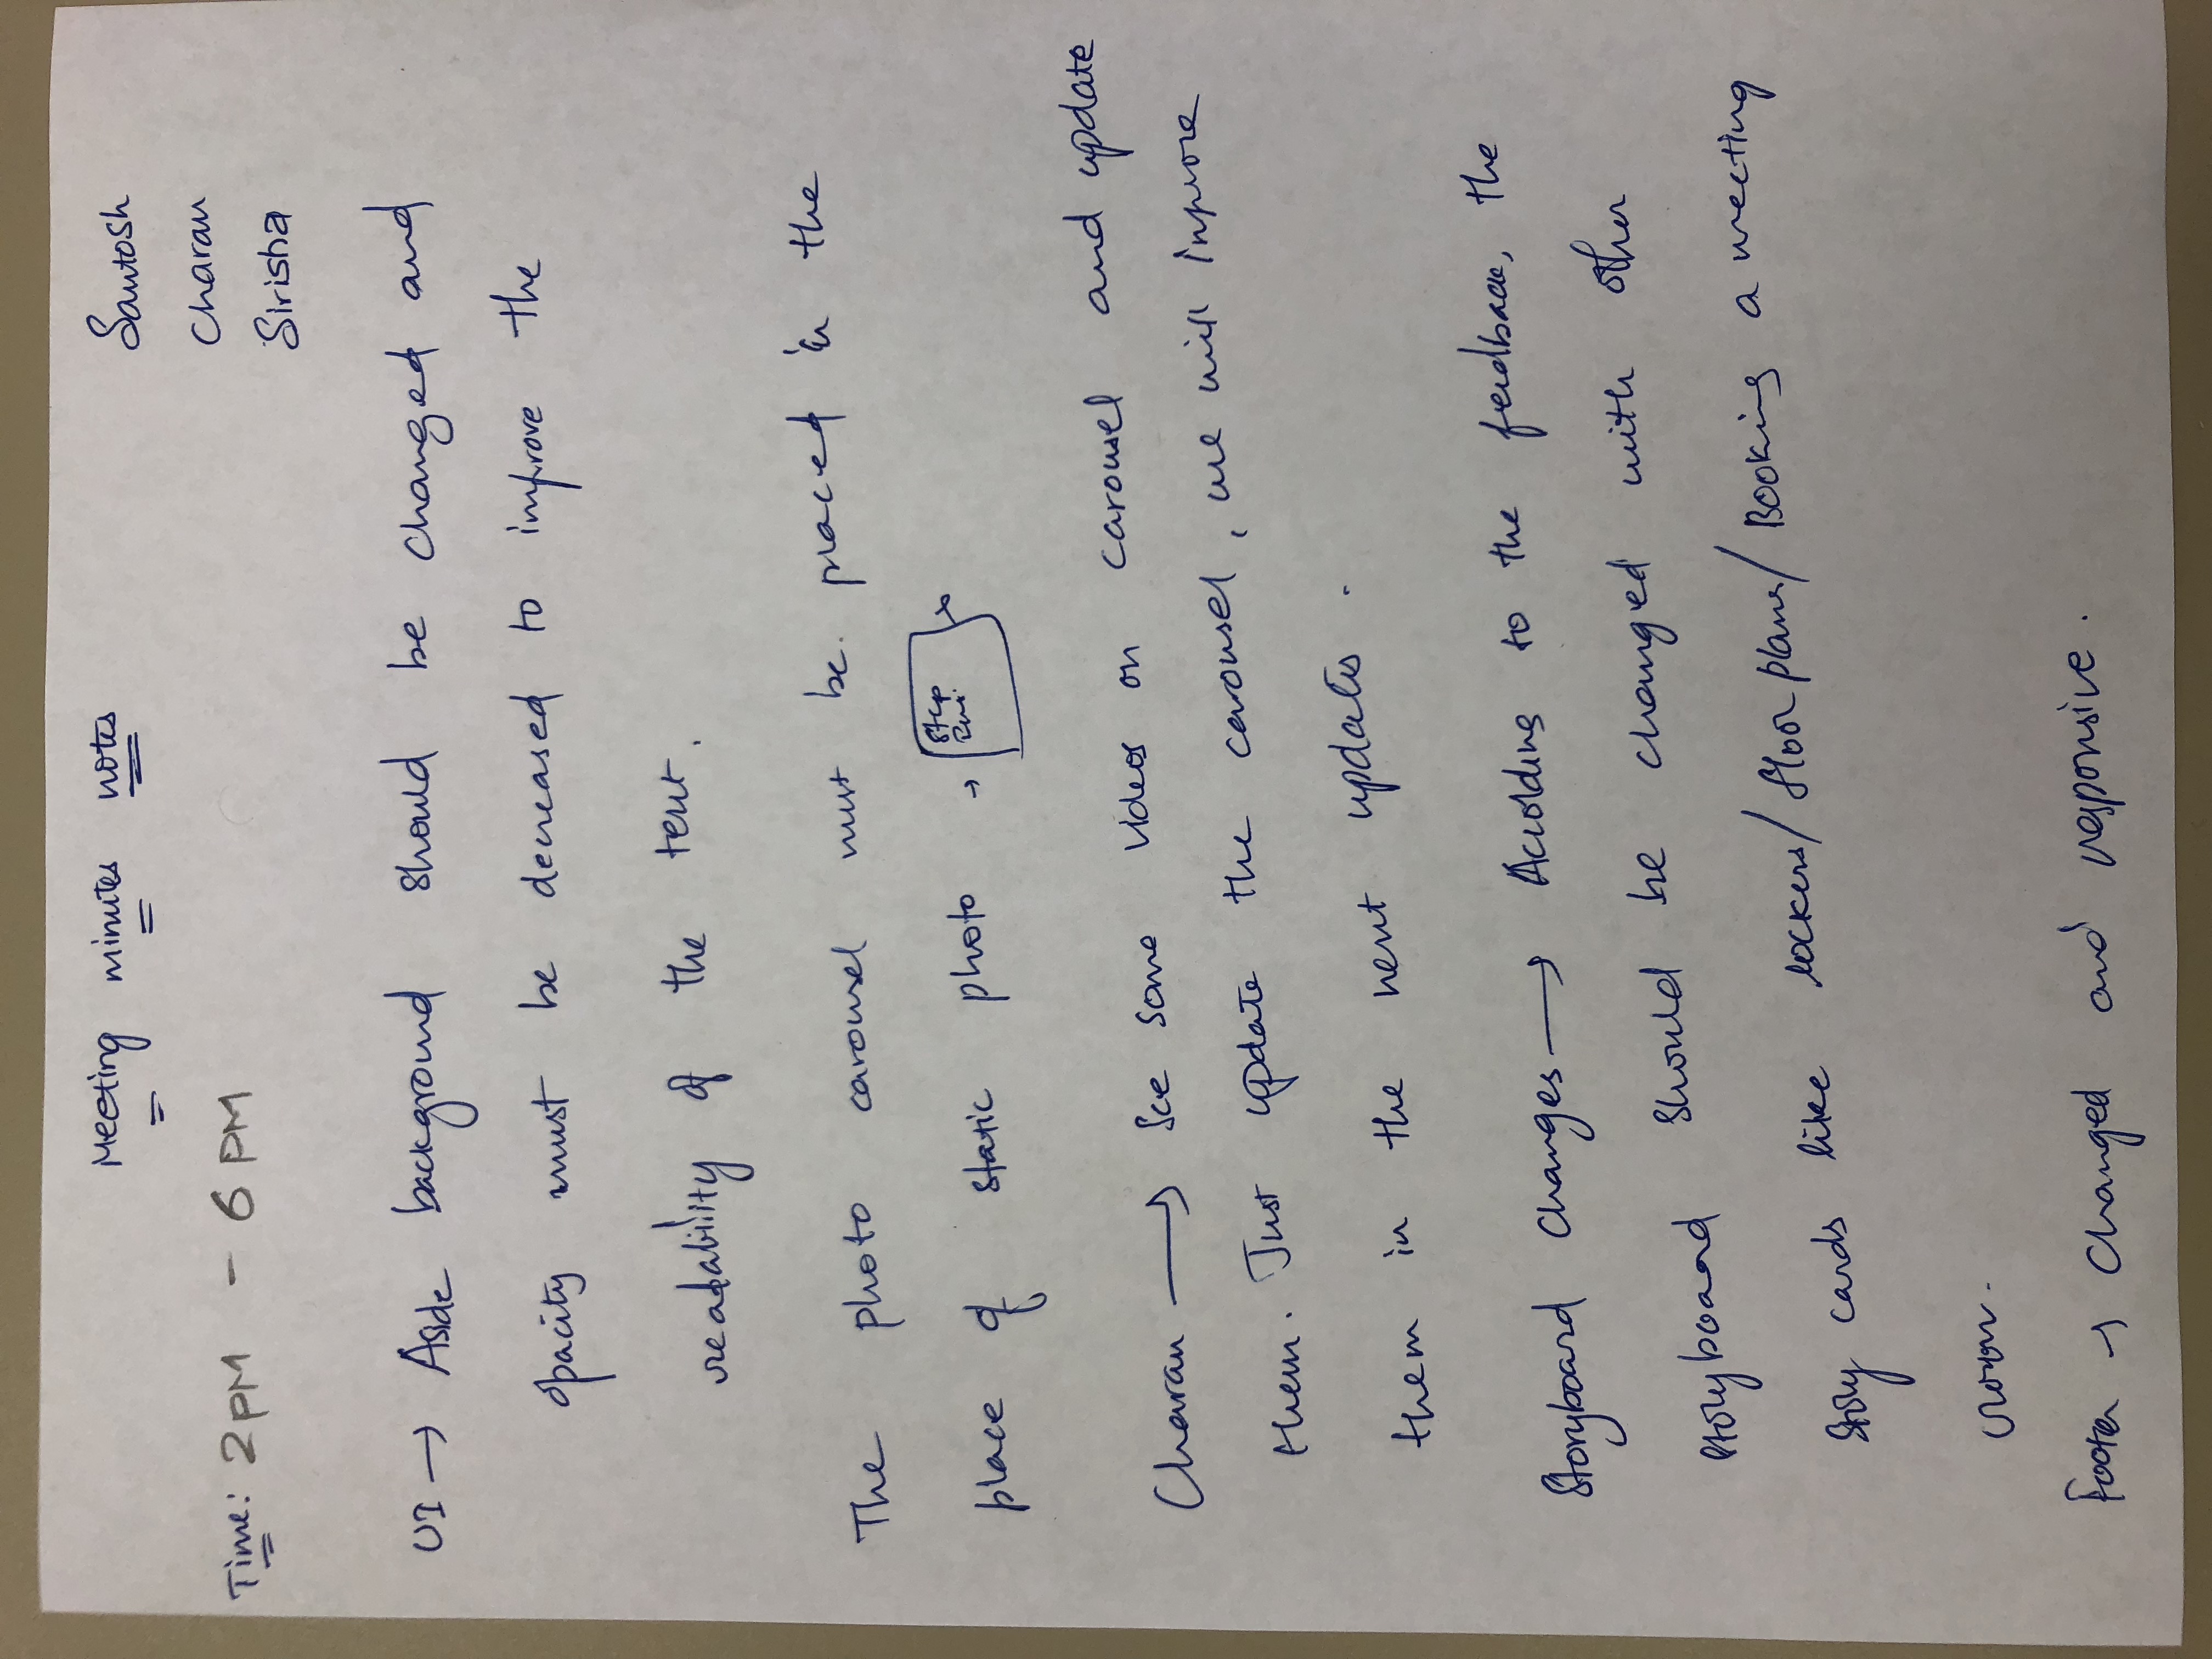 Meeting minutes notes
Santosh
Charan
Sirisha
Time: 2 PM - 6 PM
UI → Aside background should be changed and
opacity must be decreased to improve the
readability of the text.
The photo carousel must be placed in the
place of static photo →
Step
Charan → See some videos on carousel and update
them. Just update the carousel, we will improve
them in the next updates.
Storyboard changes → According to the feedback, the
storyboard should be changed with other
story cards like lockers/floor plans/Booking a meeting
room.
Footer → Changed and responsive.